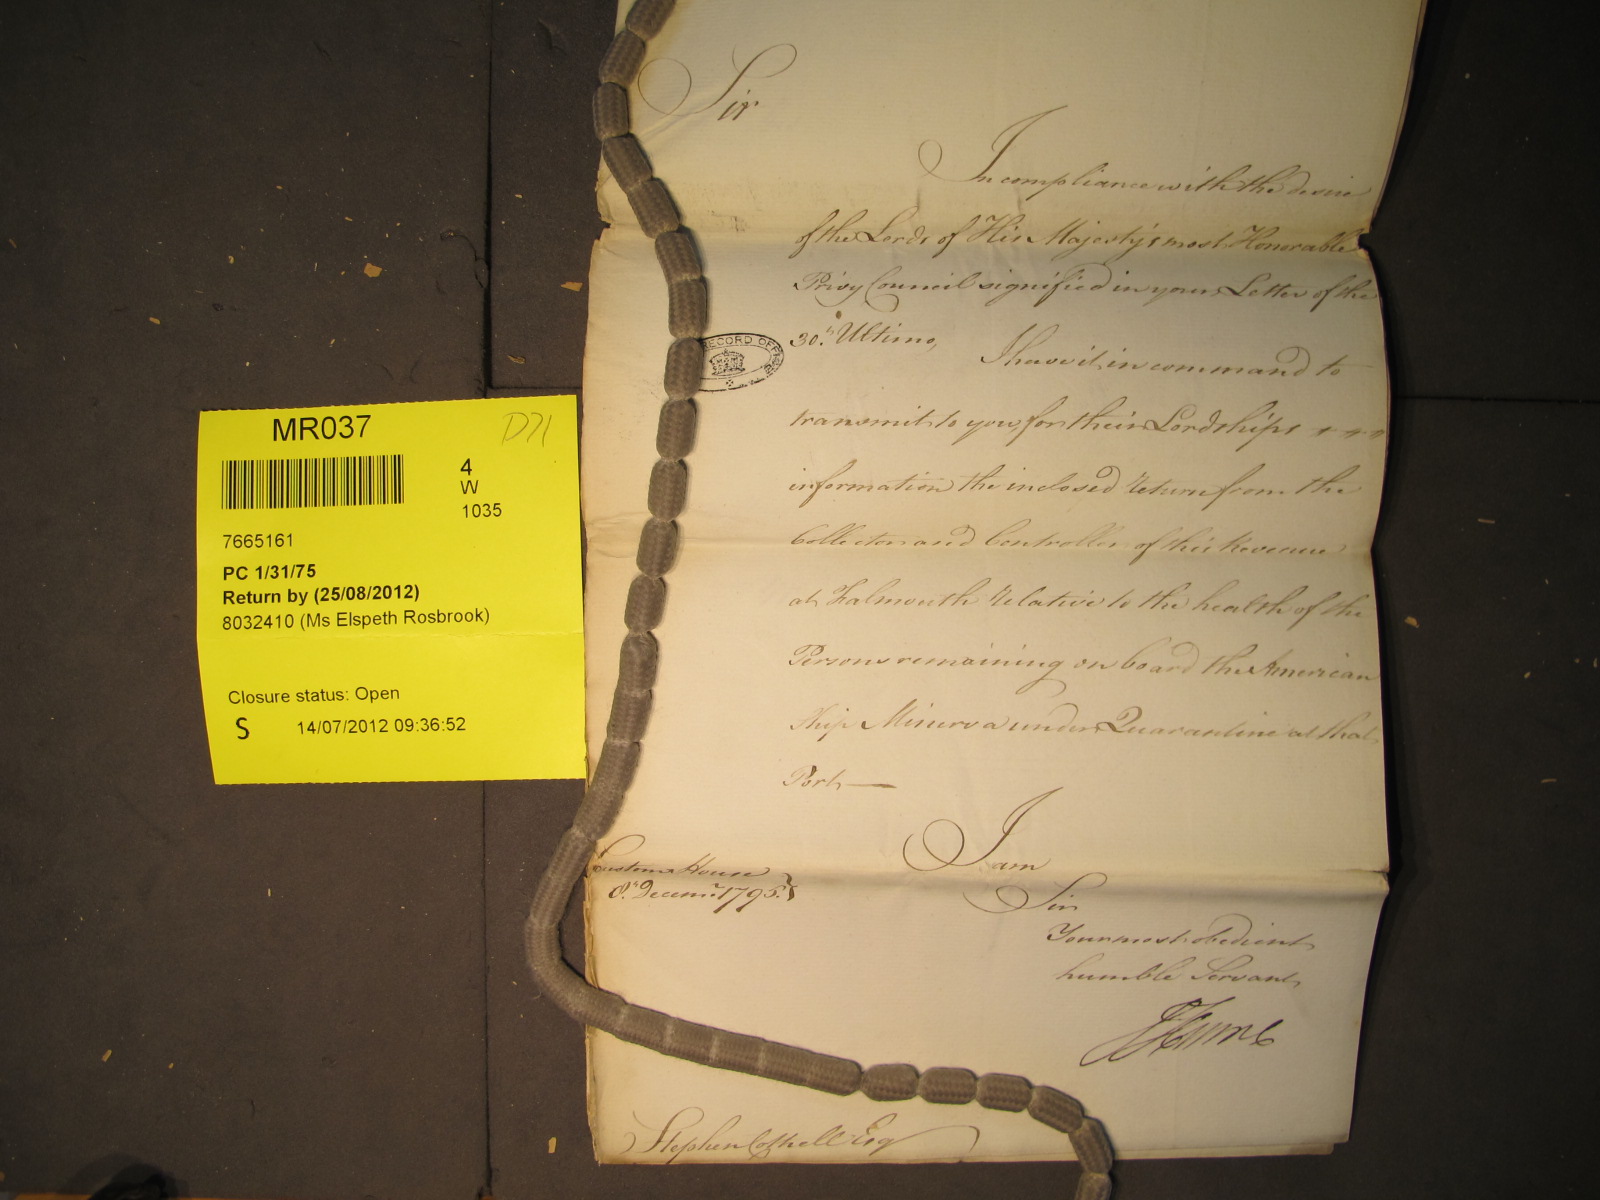 Sir
In compliance with the desire
of the Lords of His Majesty's most Honorable
Privy Council signified in your Letter of the
30th Ultimo,
I have it in command to
transmit to you, for their Lordships
information the inclosed Return from the
Collector and Controller of this Revenue
at Falmouth relative to the health of the
Persons remaining on board the American
Ship Minerva under Quarantine at that
Port —
I am
Sir
Your most obedient
humble Servant
Custom House
8th Decemr. 1795.
Stephen Cottrell Esq
RECORD OFFICE
MR037
D71
4
W
1035
7665161
PC 1/31/75
Return by (25/08/2012)
8032410 (Ms Elspeth Rosbrook)
Closure status: Open
S 14/07/2012 09:36:52